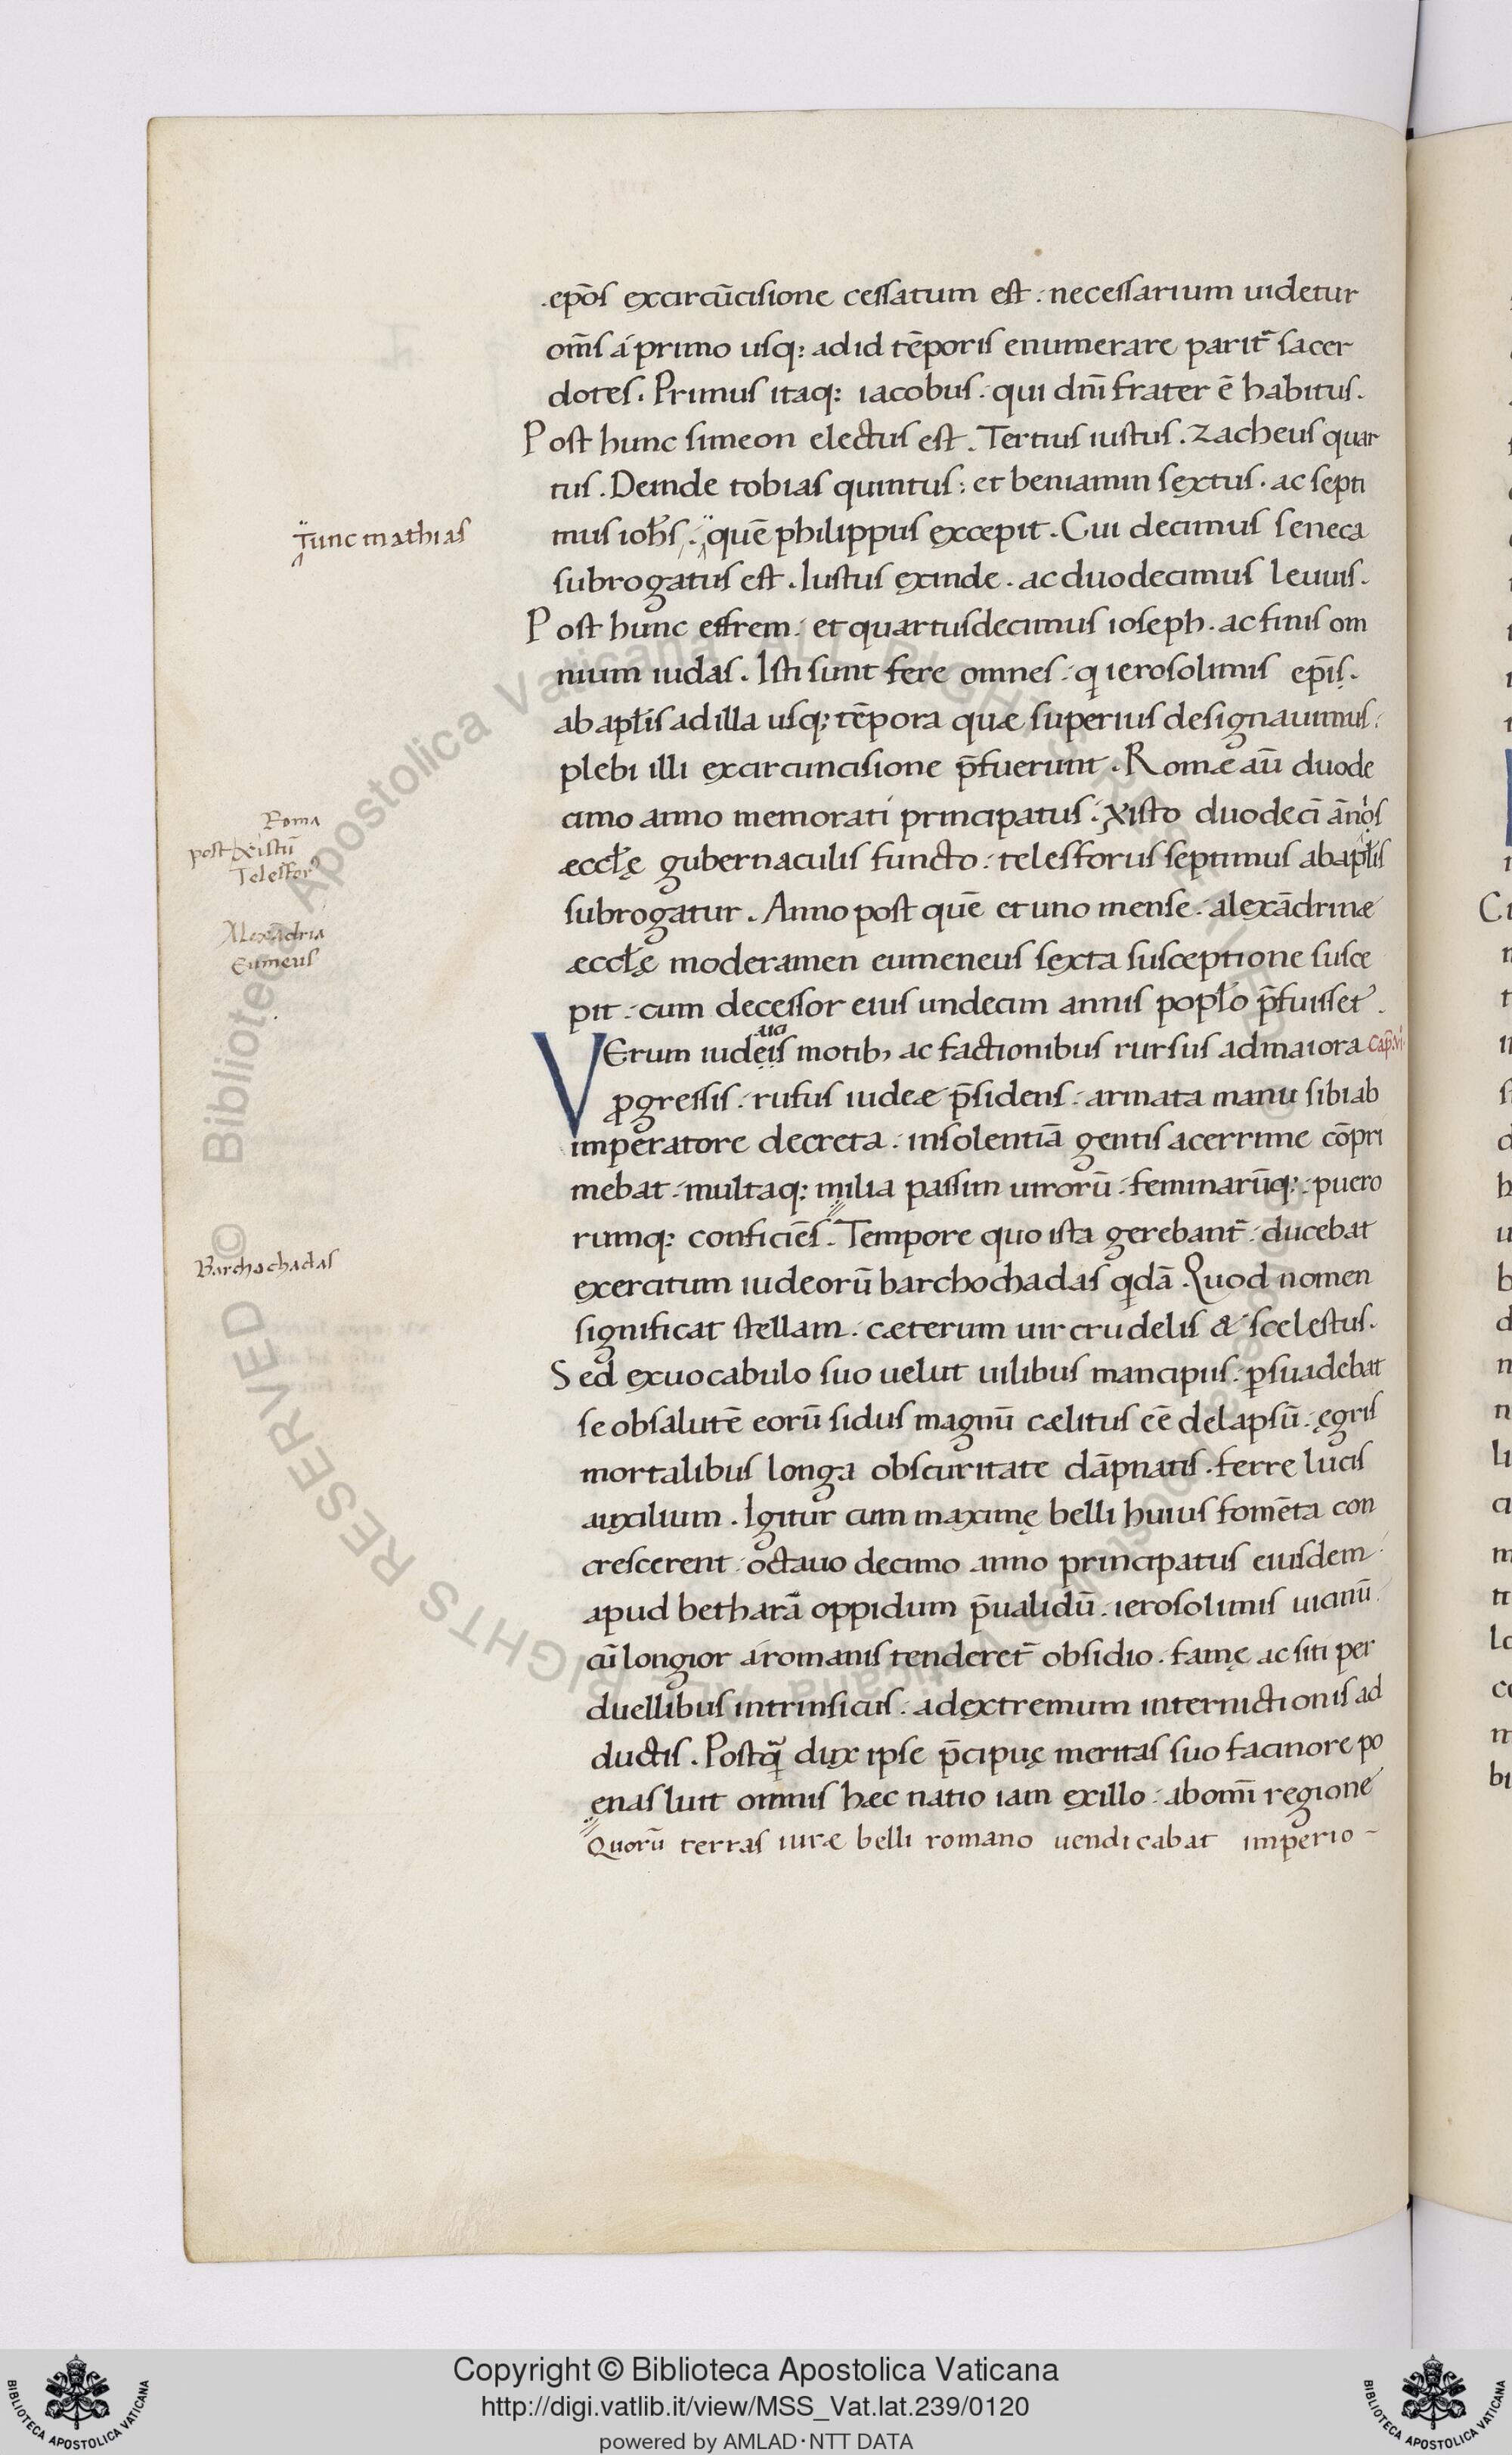 .ep̄os excircūcisione cessatum est : necessarium uidetur
om̄s á primo usq; ad id tēporis enumerare parit̄ sacer
dotes. Primus itaq; iacobus. qui dn̄i frater ē habitus.
Post hunc simeon electus est. Tertius iustus. zacheus quar
tus. Deinde tobias quintus: et beniamin sextus. ac septi
Tunc mathias
mus ioħs. quē philippus excepit. Cui decimus seneca
subrogatus est. Iustus exinde. ac duodecimus leuuis.
Post hunc effrem. et quartusdecimus ioseph. ac finis om
nium iudas. Isti sunt fere omnes. q ierosolimis ep̄is.
ab apłis ad illa usq; tēpora quæ superius designauimus:
plebi illi excircuncisione p̄fuerunt. Romæ aū duode
Roma
post xistū
Telesfor
cimo anno memorati principatus. xisto duodeci ānos
æccłę gubernaculis functo. telesforus septimus ab apłis
subrogatur. Anno post quē et uno mense. alexādrinæ
Alexādria
Eumeus
æccłę moderamen eumeneus sexta susceptione susce
pit. cum decessor eius undecim annis popło p̄fuisset.
aia
VErum iudeis motib; ac factionibus rursus ad maiora Cap. vi.
progressis. rufus iudeæ p̄sidens. armata manu sibi ab
imperatore decreta. insolentiā gentis acerrime cōpri
mebat. multaq; milia passim uirorū. feminarūq; puero
rumq; conficiēs. Tempore quo ista gerebant̄. ducebat
Barchochadas
exercitum iudeorū barchochadas qdā. Quod nomen
significat stellam. cæterum uir crudelis & scelestus.
Sed ex uocabulo suo uelut uilibus mancipiis. psuadebat
se ob salutē eorū sidus magnū cælitus eē delapsū. ęgris
mortalibus longa obscuritate dāpnatis. ferre lucis
auxilium. Igitur cum maximę belli huius fomēta con
crescerent. octauo decimo anno principatus eiusdem
apud betharā oppidum p̄ualidū. ierosolimis uicinū.
cū longior á romanis tenderet̄ obsidio. famę ac siti per
duellibus intrinsicus. ad extremum internictionis ad
ductis. Postq̄ dux ipse p̄cipuę meritas suo facinore po
enas luit omnis hæc natio iam ex illo. ab omī regione
Quorū terras iuræ belli romano uendicabat imperio -
Copyright © Biblioteca Apostolica Vaticana
http://digi.vatlib.it/view/MSS_Vat.lat.239/0120
powered by AMLAD·NTT DATA
BIBLIOTECA APOSTOLICA VATICANA
BIBLIOTECA APOSTOLICA VATICANA
© Biblioteca Apostolica Vaticana ALL RIGHTS RESERVED